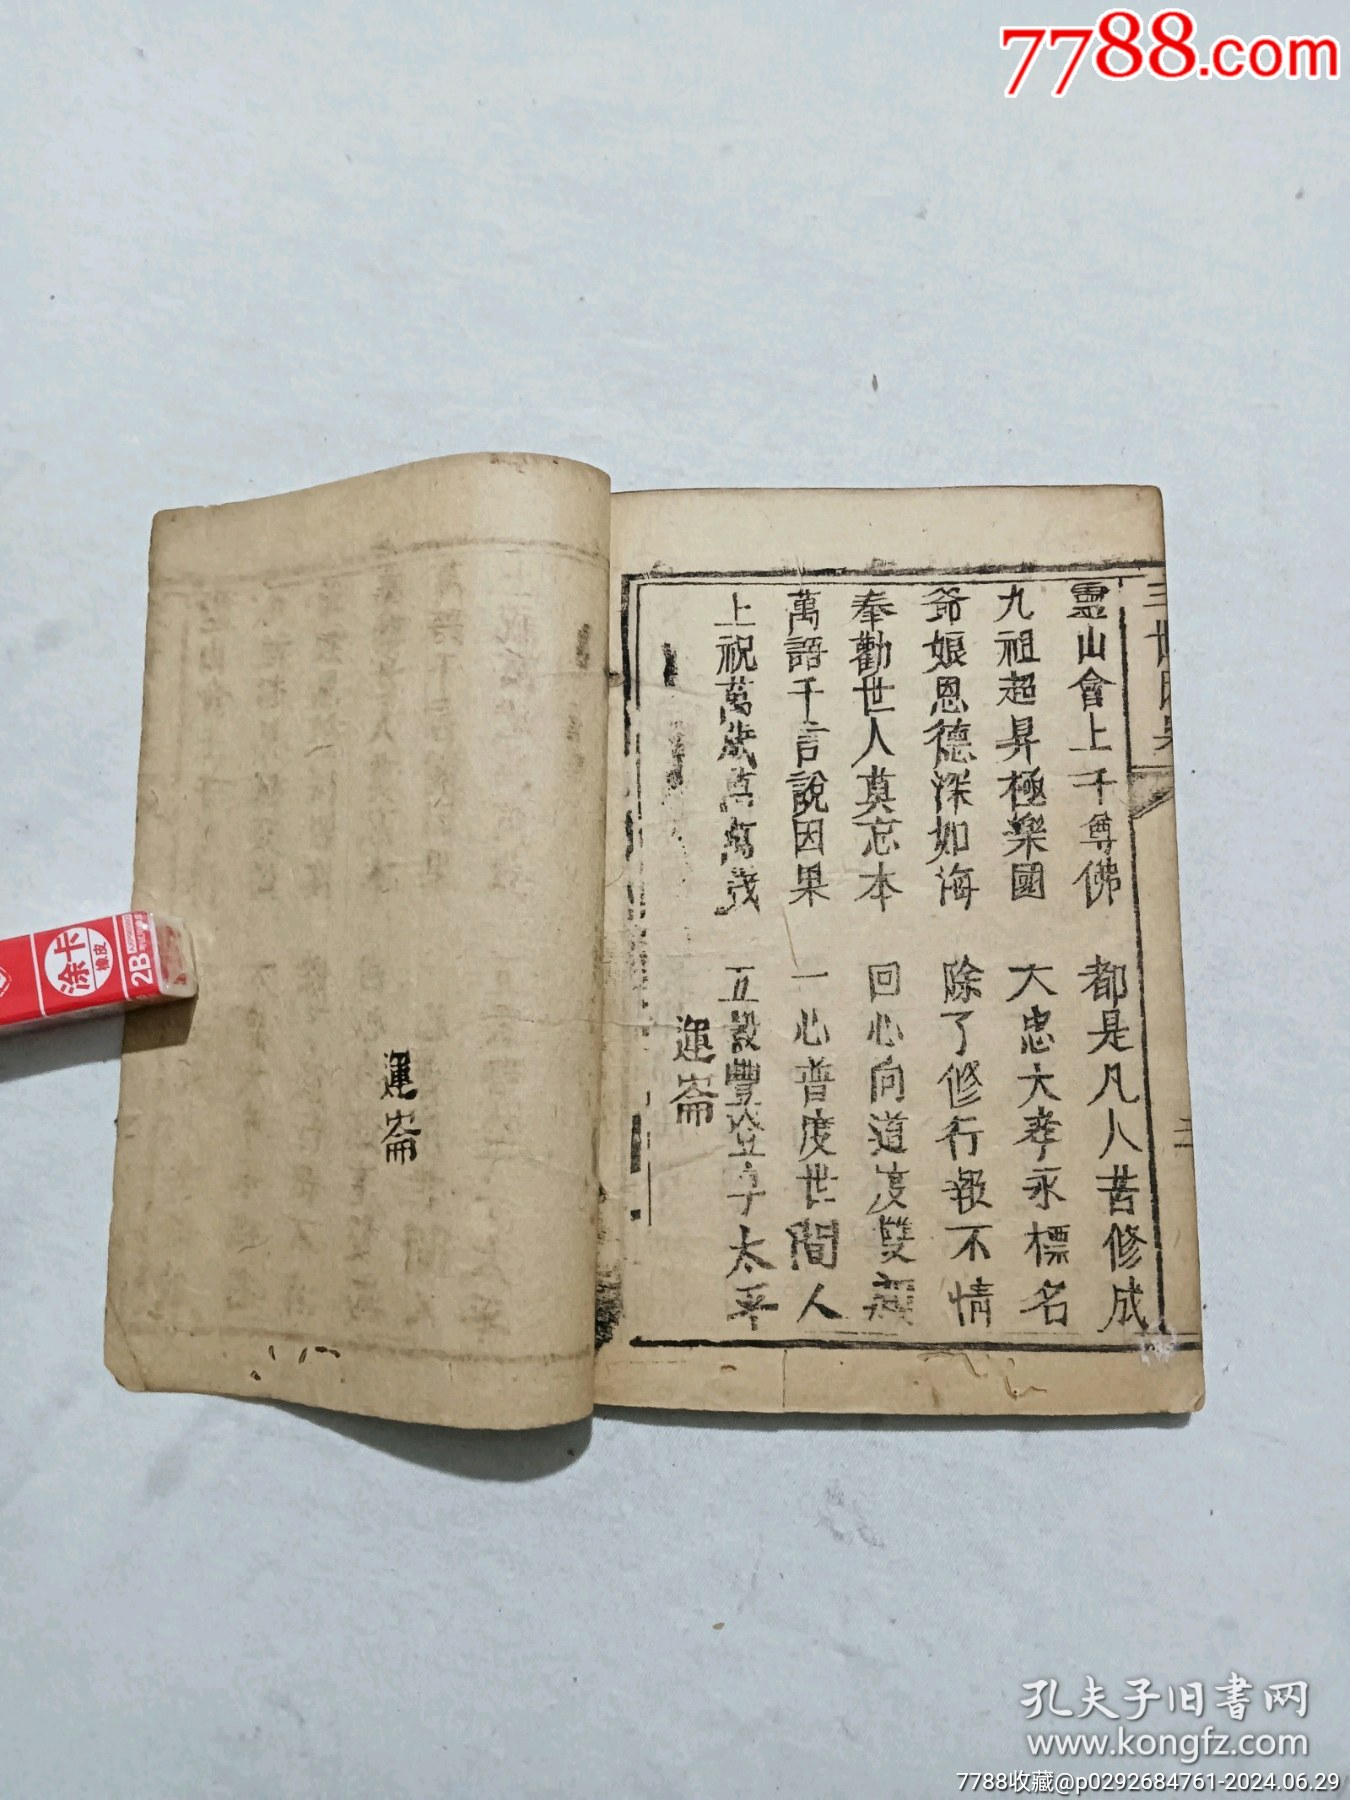 7788.com
三世因果
靈山會上千尊佛 都是凡人苦修成
九祖超昇極樂國 大忠大孝永標名
爺娘恩德深如海 除了修行報不情
奉勸世人莫忘本 回心向道度雙親
萬語千言說因果 一心普度世間人
上祝萬歲萬萬歲 五穀豐登享太平
運崙
運崙
涂卡
橡皮
2B
孔夫子旧书网
www.kongfz.com
7788收藏@p0292684761-2024.06.29